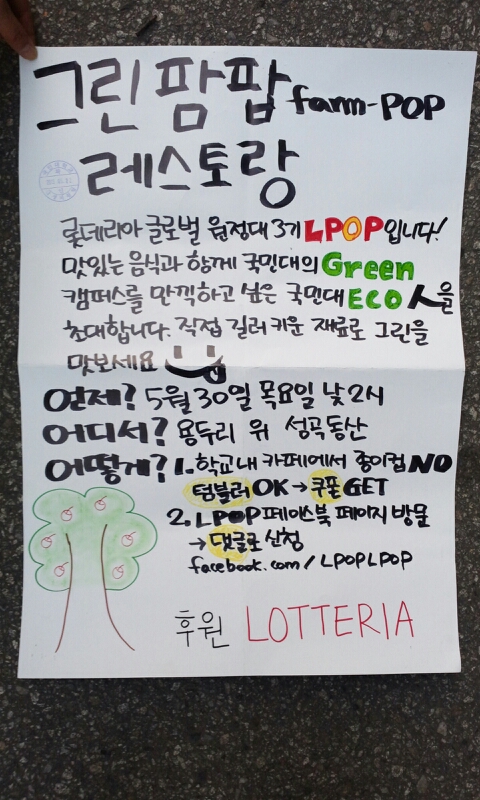 그린 팜팝 farm-POP
레스토랑
롯데리아 글로벌 원정대 3기 LPOP입니다!
맛있는 음식과 함께 국민대의 Green
캠퍼스를 만끽하고 싶은 국민대 ECO 人을
초대합니다. 직접 길러 키운 재료로 그린을
맛보세요
언제? 5월 30일 목요일 낮 2시
어디서? 용두리 위 성곡동산
어떻게? 1. 학교 내 카페에서 종이컵 NO
텀블러 OK → 쿠폰 GET
2. LPOP 페이스북 페이지 방문
→ 댓글로 신청
facebook.com/LPOPLPOP
후원 LOTTERIA